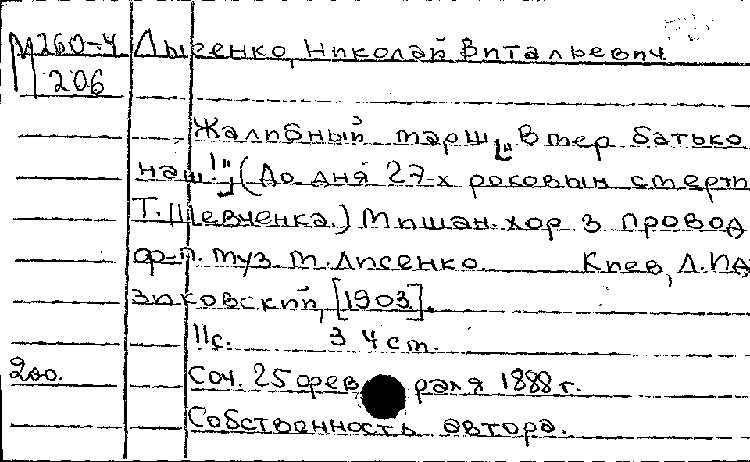 М260-4 Лысенко, Николай Витальевич
206
Жалибный марш „Вмер батько
наш!", (До дня 27-х роковын смерты
Т. Шевченка.) Мишан. хор з провод
ф-п. муз. М. Лисенко Киев, Л. Ид
зиковский, [1903].
11с. 34ст.
200. Соч. 25 фев раля 1888 г.
Собственность автора.